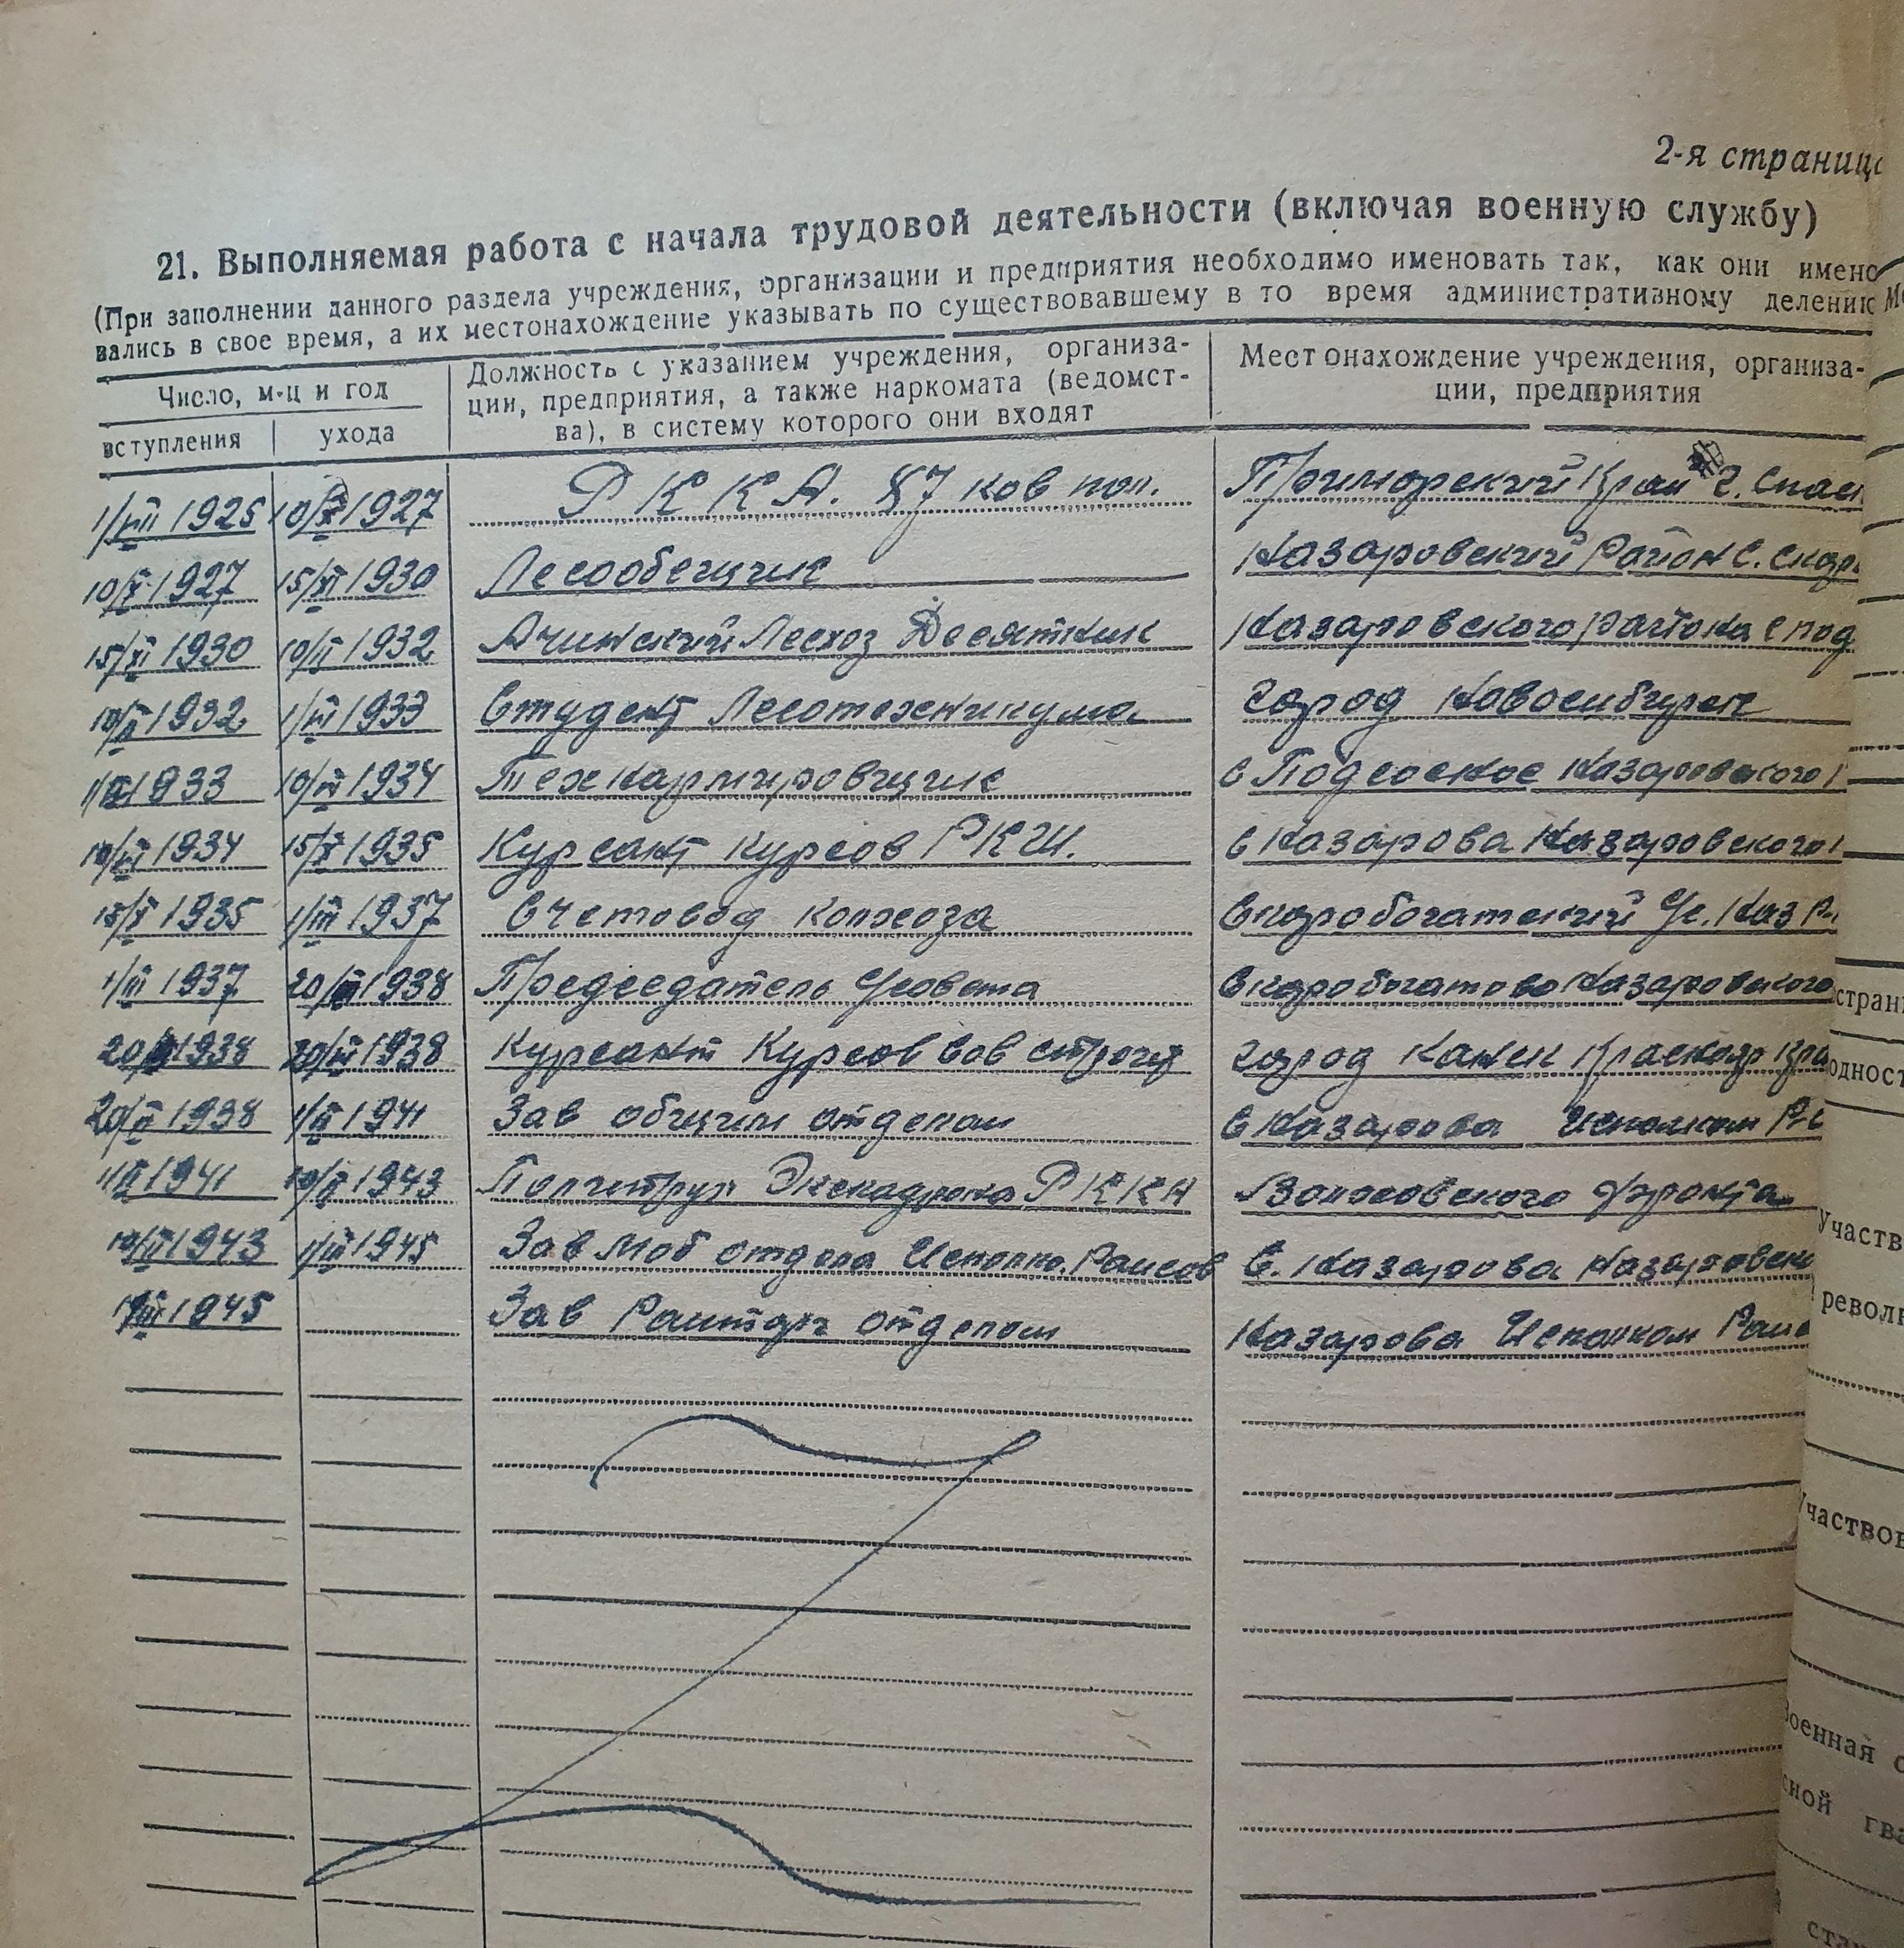 2-я страниц
21. Выполняемая работа с начала трудовой деятельности (включая военную службу)
(При заполнении данного раздела учреждения, организации и предприятия необходимо именовать так, как они имено
вались в свое время, а их местонахождение указывать по существовавшему в то время административному делению
Число, м-ц и год
вступления
ухода
Должность с указанием учреждения, организа-
ции, предприятия, а также наркомата (ведомст-
ва), в систему которого они входят
Местонахождение учреждения, организа-
ции, предприятия
1/VIII 1925 10/X 1927 Р К К А. 87 кав пол. Приморский Край г. Спасс
10/X 1927 15/XI 1930 Лесообещик Назаровский Район С. Скор
15/XI 1930 10/II 1932 Ачинский Лесхоз Десятник Назаровского района с под
10/II 1932 1/III 1933 Студент Лесотехникума город Новосибирск
1/III 1933 10/III 1934 Тех Нармировщик с Подсосное Назаровского
10/III 1934 15/X 1935 Курсант Курсов РКШ. с Назарова Назаровского
15/X 1935 1/III 1937 Счетовод колхоза Скоробогатский С/с. Наз Р-
1/III 1937 20/ 1938 Председатель С/совета Скоробогатово Назаровского
20/ 1938 20/ 1938 Курсант Курсов Сов строит город Канск Краснояр Кра
20/ 1938 1/ 1941 Зав общим отделом с Назарова Исполком Р-
1/ 1941 10/ 1943 Политрук Эскадрона РККА Волховского фронта
10/ 1943 1/III 1945 Зав Моб отдела Исполко. Райсов С. Назарова Назаровско
1/III 1945 Зав Райторг отделом Назарова Исполком Рай
стран
одност
Участв
револ
Участвов
военная с
сной гва